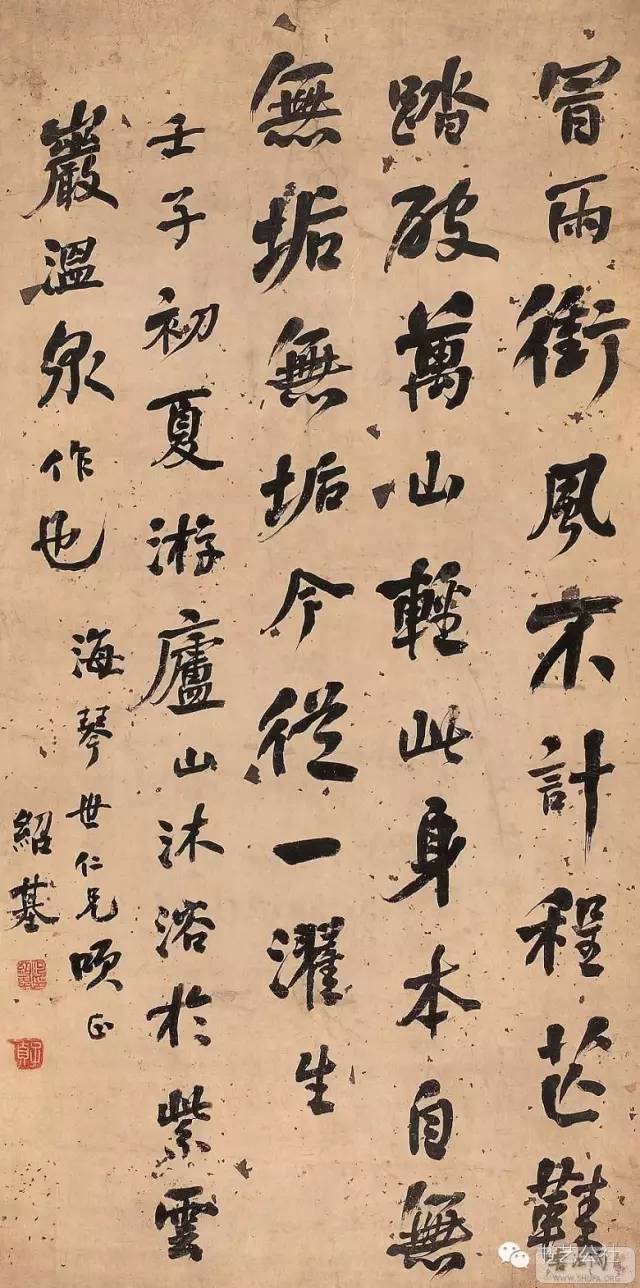 冒雨衝風不計程芒鞵
踏破萬山輕此身本自無
無垢無垢今從一濯生
壬子初夏游廬山沐浴於紫雲
巖溫泉作也
海琴世仁兄
正
紹基
竹艺公社
WWW.SHUFA.ORG